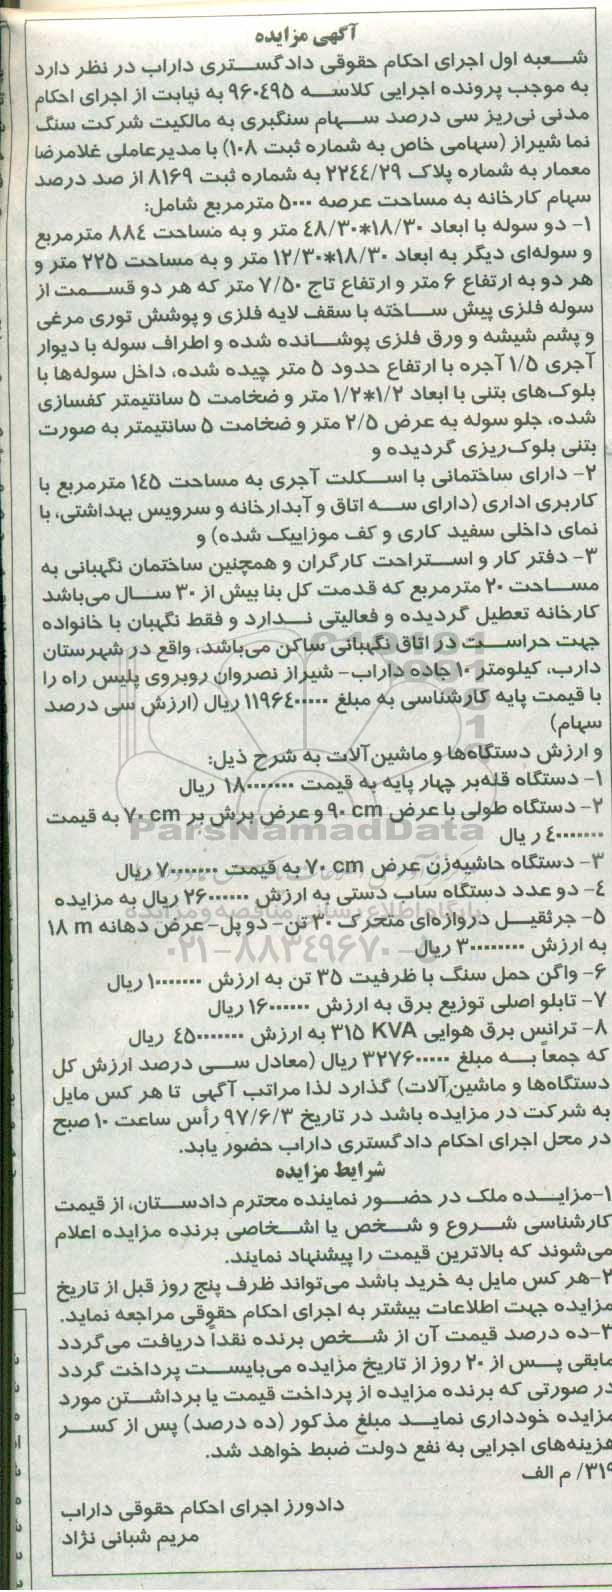 آگهی مزایده
شعبه اول اجرای احکام حقوقی دادگستری داراب در نظر دارد
به موجب پرونده اجرایی کلاسه ۹۶۰۴۹۵ به نیابت از اجرای احکام
مدنی نی‌ریز سی درصد سهام سنگبری به مالکیت شرکت سنگ
نما شیراز (سهامی خاص به شماره ثبت ۱۰۸) با مدیرعاملی غلامرضا
معمار به شماره پلاک ۲۲۴۴/۲۹ به شماره ثبت ۸۱۶۹ از صد درصد
سهام کارخانه به مساحت عرصه ۵۰۰۰ مترمربع شامل:
۱- دو سوله با ابعاد ۱۸/۳۰*۴۸/۳۰ متر و به مساحت ۸۸۴ مترمربع
و سوله‌ای دیگر به ابعاد ۱۸/۳۰*۱۲/۳۰ متر و به مساحت ۲۲۵ متر و
هر دو به ارتفاع ۶ متر و ارتفاع تاج ۷/۵۰ متر که هر دو قسمت از
سوله فلزی پیش ساخته با سقف لایه فلزی و پوشش توری مرغی
و پشم شیشه و ورق فلزی پوشانده شده و اطراف سوله با دیوار
آجری ۱/۵ آجره با ارتفاع حدود ۵ متر چیده شده، داخل سوله‌ها با
بلوک‌های بتنی با ابعاد ۱/۲*۱/۲ متر و ضخامت ۵ سانتیمتر کفسازی
شده، جلو سوله به عرض ۲/۵ متر و ضخامت ۵ سانتیمتر به صورت
بتنی بلوک‌ریزی گردیده و
۲- دارای ساختمانی با اسکلت آجری به مساحت ۱۴۵ مترمربع با
کاربری اداری (دارای سه اتاق و آبدارخانه و سرویس بهداشتی، با
نمای داخلی سفید کاری و کف موزاییک شده) و
۳- دفتر کار و استراحت کارگران و همچنین ساختمان نگهبانی به
مساحت ۲۰ مترمربع که قدمت کل بنا بیش از ۳۰ سال می‌باشد
کارخانه تعطیل گردیده و فعالیتی ندارد و فقط نگهبان با خانواده
جهت حراست در اتاق نگهبانی ساکن می‌باشد، واقع در شهرستان
دارب، کیلومتر ۱۰ جاده داراب- شیراز نصروان روبروی پلیس راه را
با قیمت پایه کارشناسی به مبلغ ۱۱۹۶۴۰۰۰۰۰ ریال (ارزش سی درصد
سهام)
و ارزش دستگاه‌ها و ماشین‌آلات به شرح ذیل:
۱- دستگاه قله‌بر چهار پایه به قیمت ۱۸۰۰۰۰۰۰۰ ریال
۲- دستگاه طولی با عرض ۹۰ cm و عرض برش بر ۷۰ cm به قیمت
۴۰۰۰۰۰۰۰ ر یال
۳- دستگاه حاشیه‌زن عرض ۷۰ cm به قیمت ۷۰۰۰۰۰۰۰ ریال
۴- دو عدد دستگاه ساب دستی به ارزش ۲۶۰۰۰۰۰۰ ریال به مزایده
۵- جرثقیل دروازه‌ای متحرک ۳۰ تن- دو پل- عرض دهانه ۱۸ m
به ارزش ۳۰۰۰۰۰۰۰۰ ریال
۶- واگن حمل سنگ با ظرفیت ۳۵ تن به ارزش ۱۰۰۰۰۰۰۰ ریال
۷- تابلو اصلی توزیع برق به ارزش ۱۶۰۰۰۰۰۰ ریال
۸- ترانس برق هوایی ۳۱۵ KVA به ارزش ۴۵۰۰۰۰۰۰۰ ریال
که جمعاً به مبلغ ۳۲۷۶۰۰۰۰۰ ریال (معادل سی درصد ارزش کل
دستگاه‌ها و ماشین‌آلات) گذارد لذا مراتب آگهی تا هر کس مایل
به شرکت در مزایده باشد در تاریخ ۹۷/۶/۳ رأس ساعت ۱۰ صبح
در محل اجرای احکام دادگستری داراب حضور یابد.
شرایط مزایده
۱-مزایده ملک در حضور نماینده محترم دادستان، از قیمت
کارشناسی شروع و شخص یا اشخاصی برنده مزایده اعلام
می‌شوند که بالاترین قیمت را پیشنهاد نمایند.
۲-هر کس مایل به خرید باشد می‌تواند ظرف پنج روز قبل از تاریخ
مزایده جهت اطلاعات بیشتر به اجرای احکام حقوقی مراجعه نماید.
۳-ده درصد قیمت آن از شخص برنده نقداً دریافت می‌گردد
مابقی پس از ۲۰ روز از تاریخ مزایده می‌بایست پرداخت گردد
در صورتی که برنده مزایده از پرداخت قیمت یا برداشتن مورد
مزایده خودداری نماید مبلغ مذکور (ده درصد) پس از کسر
هزینه‌های اجرایی به نفع دولت ضبط خواهد شد.
۳۱۹/ م الف
دادورز اجرای احکام حقوقی داراب
مریم شبانی نژاد
ParsNamadData
۰۲۱-۸۸۳۴۹۶۷۰-۵